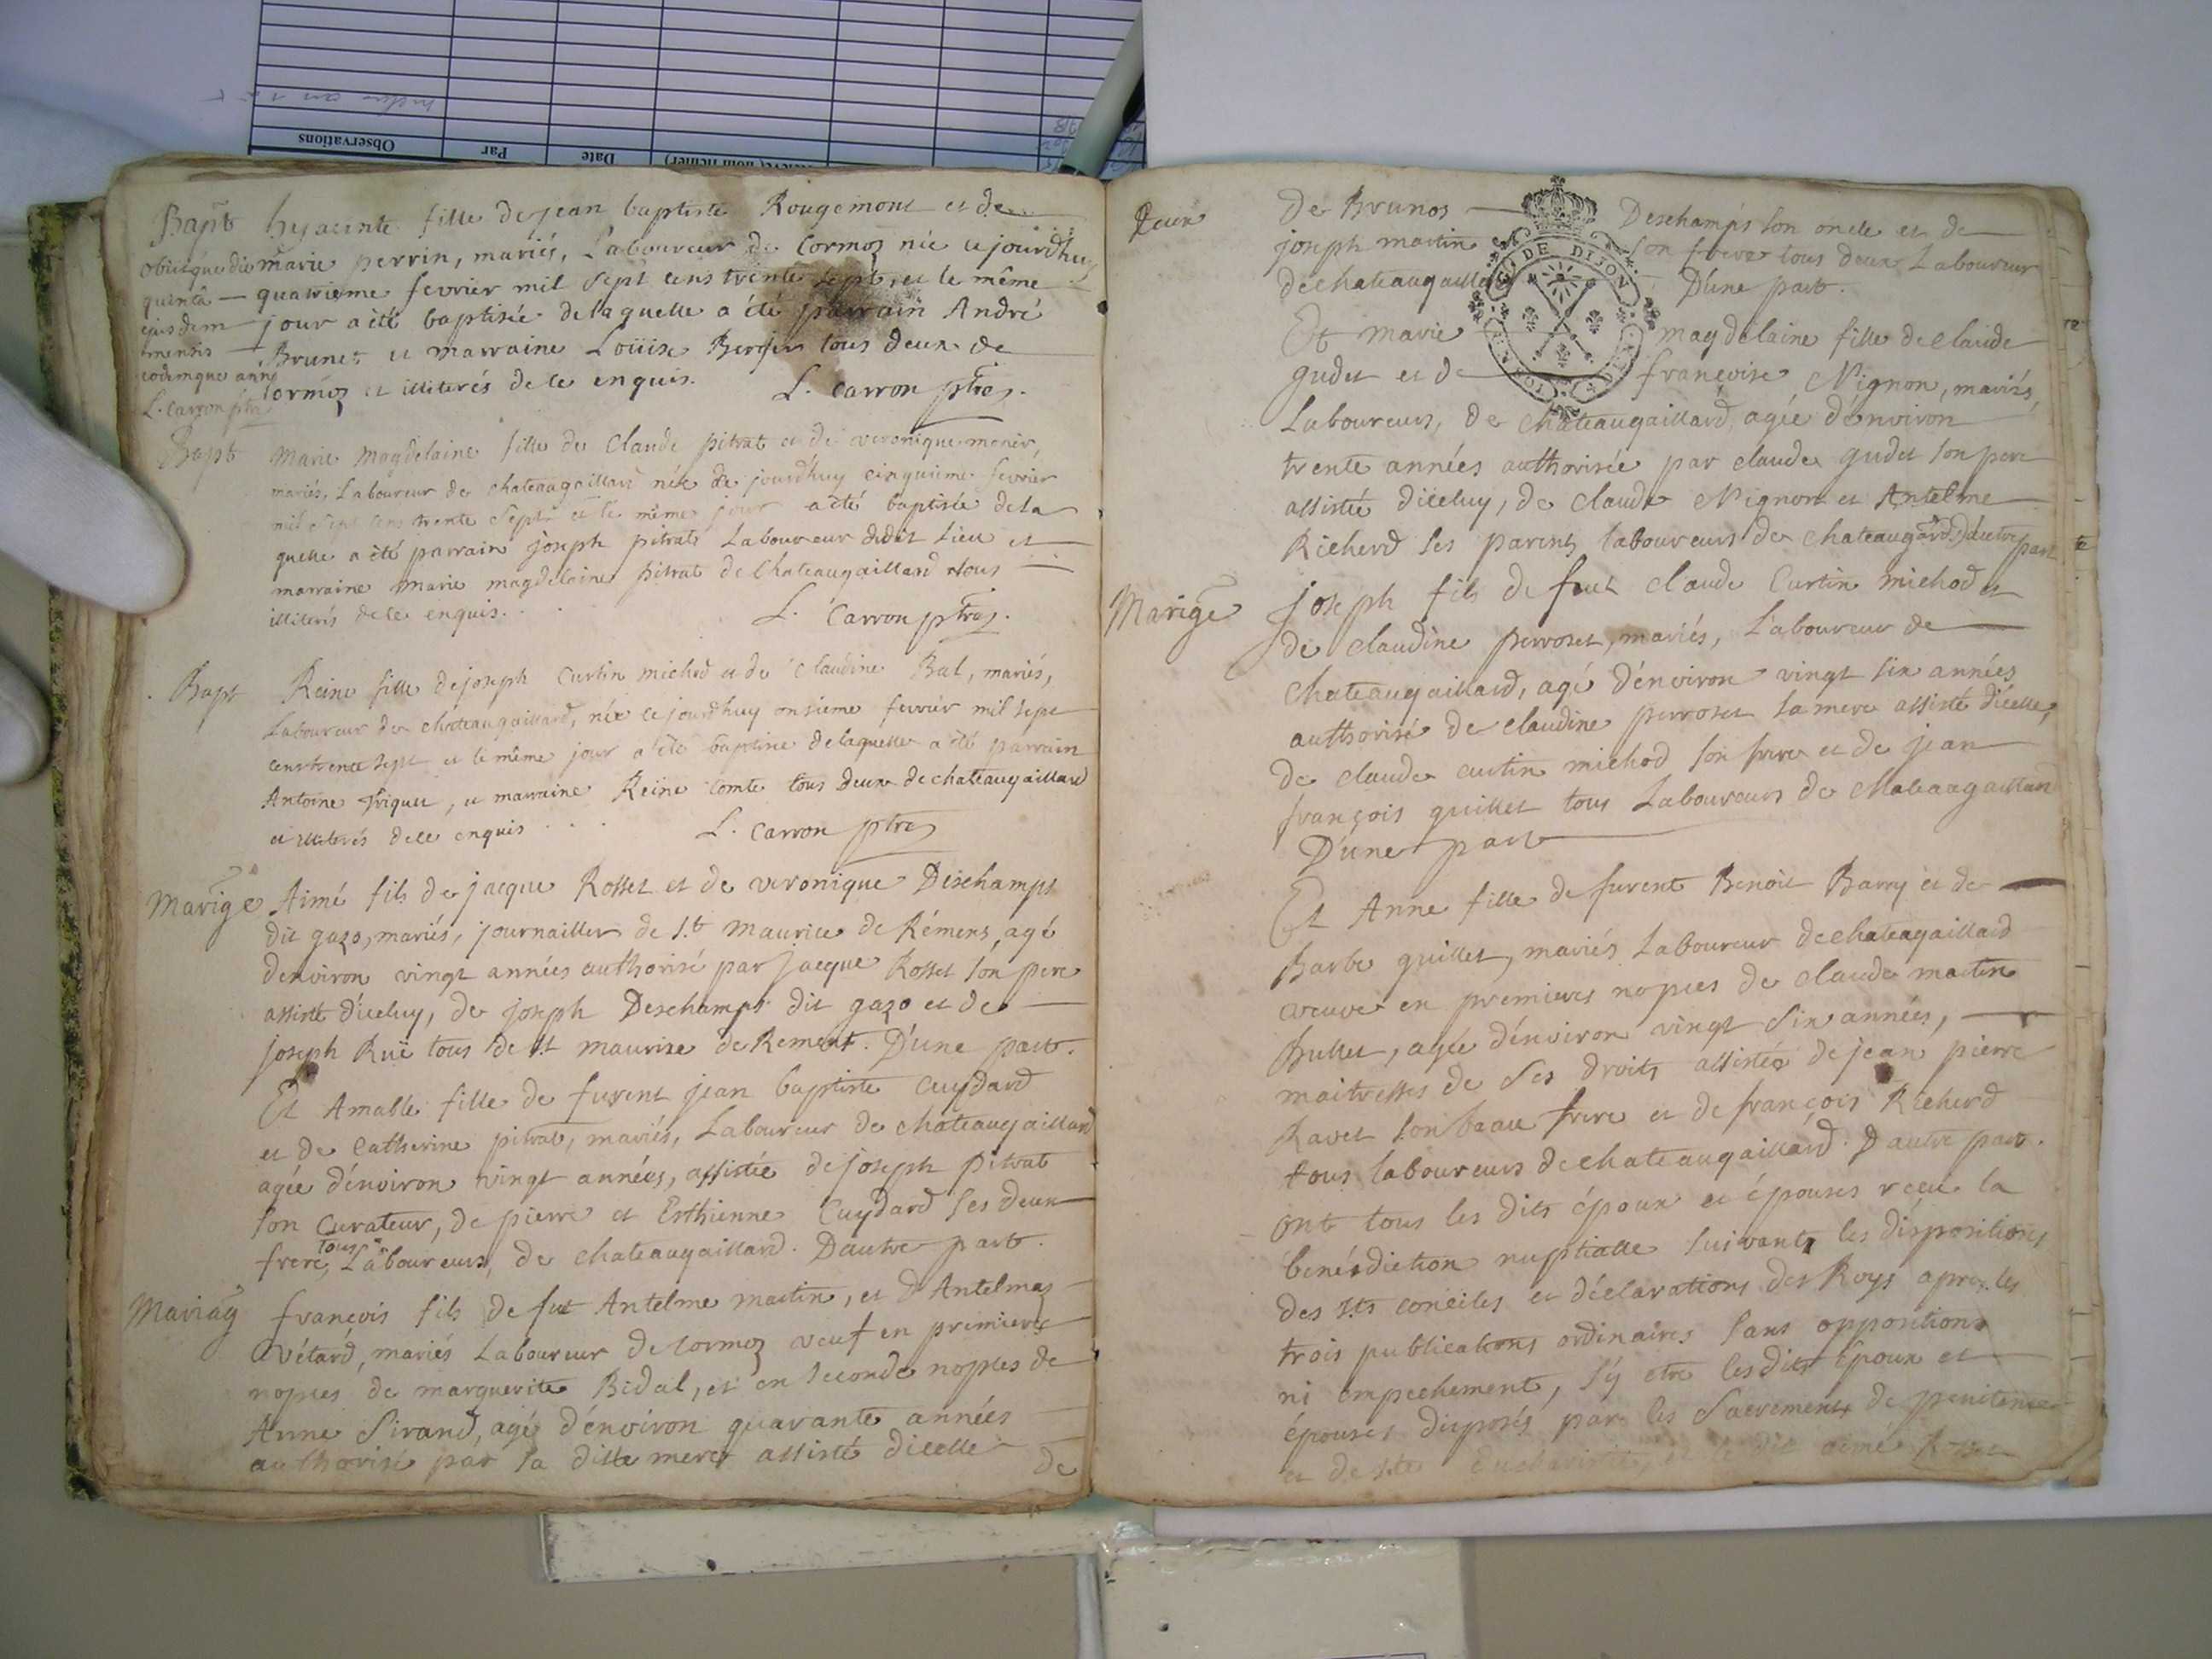 Observations
Par
Date
Bapt
obiit que die
quintâ —
ejusdem
mensis
eodemque anno
L. Carron ptre
hyacinte fille de jean baptiste Rougemont et de
marie perrin, mariés, Laboureur de Cormoz née ce jourdhuy
quatrieme fevrier mil sept cens trente sept, et le même
jour a été baptisée de laquelle a été parrain André
Brunet et marraine Loüise tous deux de
Cormoz et illiterés de ce enquis. L. Carron ptre.
Bapt
Marie Magdelaine fille de Claude pitrat et de veronique
mariés, Laboureur de chateaugaillard née de jourdhuy cinquieme fevrier
mil sept cens trente sept et le même jour a été baptisée de la
quelle a été parrain joseph pitrat Laboureur dudit Lieu et
marraine marie magdelaine pitrat de Chateaugaillard tous
illiterés de ce enquis. L. Carron ptre.
Bapt
Reine fille de joseph Curtin michod et de Claudine Bal, mariés,
Laboureur de chateaugaillard, née ce jourdhuy onsieme fevrier mil sept
cens trente sept et le même jour a été baptisée de laquelle a été parrain
Antoine, et marraine Reine Comte tous deux de chateaugaillard
et illiterés de ce enquis L. Carron ptre
Marige
Aimé fils de jacque Rosset et de veronique Deschamps
dit gazo, mariés, journaillier de St Maurice de Rémens, agé
d'environ vingt années authorisé par jacque Rosset son pere
assisté d'iceluy, de joseph Deschamps dit gazo et de
joseph Ruë tous de St maurise de Rement. D'une part.
Et Amable fille de furent jean baptiste Cuydard
et de Catherine pitrat, mariés, Laboureur de chateaugaillard
agée d'environ vingt années, assistée de joseph pitrat
son Curateur, de pierre et Esthienne Cuydard ses deux
frere, tous Laboureurs, de chateaugaillard. D'autre part.
Mariag
françois fils de fut Antelme martin, et d'Antelmaz
vétard, mariés Laboureur de Cormoz veuf en premiere
nopces de marguerite Bidal, et en seconde nopces de
Anne Sirand, agé d'environ quarante années
authorisé par sa ditte mere assisté d'icelle de
Deux
de Brunos — Deschamps son oncle et de
joseph martin son frere tous deux Laboureur
de chateaugaillard D'une part.
DE DIJON
Et marie magdelaine fille de claude
gudet et de françoise Mignon, mariés,
Laboureurs, de Chateaugaillard, agée d'environ
trente années authorisée par claude gudet son pere
assistée d'iceluy, de claude Mignon et Antelme
Richerd ses parents laboureurs de chateaugard. d'autre part
Marige
joseph fils de feut claude Curtin michod et
de claudine perroset, mariés, Laboureur de
Chateaugaillard, agé d'environ vingt six années
authorisé de claudine perroset sa mere assisté d'icelle,
de claude curtin michod son frere et de jean
françois quillet tous Laboureurs de Chateaugaillard
D'une part
Et Anne fille de furent Benoit Barry et de
Barbe quillet, mariés Laboureur de chateaugaillard
veuve en premieres nopces de claude martin
hullet, agée d'environ vingt six années,
maitresses de ses droits assistée de jean pierre
Ravet son beau frere et de françois Richerd
tous laboureurs de chateaugaillard. D'autre part.
Ont tous les dits époux et épouses reçu la
benédiction nuptialle suivants les dispositions
des Sts conciles et déclarations des Roys apres les
trois publications ordinaires sans opposition
ni empechement, s'y etre les dits époux et
épouses disposés par les Sacrements de penitence
et de Ste Eucharistie, et le dit aimé Rosset